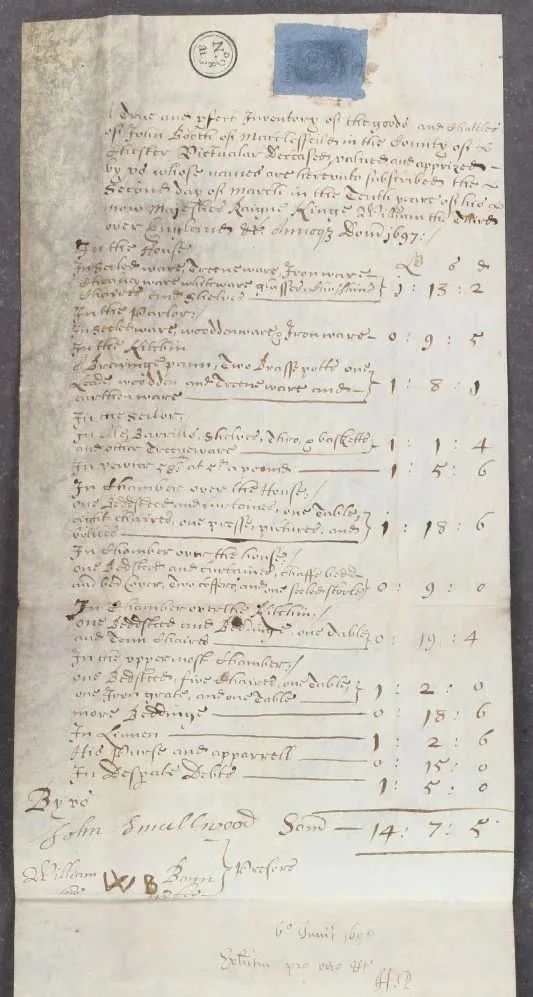 A True and pfect Inventory of the goods and Chattles
of John Booth of Macclesfeild in the County of
Chester Victualar Deceased, valued and apprized
by us whose names are hereunto subscribed the
Second day of March in the Tenth yeare of his
now Majesties Raigne Kinge William the Third
over England &c Annoqz Dom 1697:/
In the House li s d
In Seeled ware, Treeneware, Ironware
Cheanyware whiteware glasses, Chushians
Chaires and Shelves 1 : 13 : 2
In the Parlor:/
In seeleware, wooddenware & Ironware 0 : 9 : 5
In the Kitchin
A Brewinge pann, Two Brasse potts one
Leade, wooden and Treene ware and
earthen ware 1 : 8 : 1
In the Sellor:/
In Ales, Barrills, Shelves, & basketts
and other Treeneware 1 : 1 : 4
In pewter at a pound 1 : 5 : 6
In Chamber over the House:/
one Beddsteed and curtaines, one Table,
eight chaires, one presse, pictures, and
1 : 18 : 6
In Chamber over the house:/
one Bedsteed and curtaines, chaffe bedd
and bed Cover, Two coffers, and one seeled 0 : 9 : 0
In Chamber over the Kitchin:/
one Beddsteed and Beddinge, one Table
and Tenn Chaires 0 : 19 : 4
In the uppermost Chamber:/
one Bedsteed, five Chaires, one Table,
one Iron grate, and one Table 1 : 2 : 0
more Beddinge 0 : 18 : 6
In Linnen 1 : 2 : 6
His Purse and apparrell 0 : 15 : 0
In Desperate Debts 1 : 5 : 0
By us
John Smallwood Som 14 : 7 : 5
William Prisors
his
6o Junii 1698
pro vero &c
H.P.